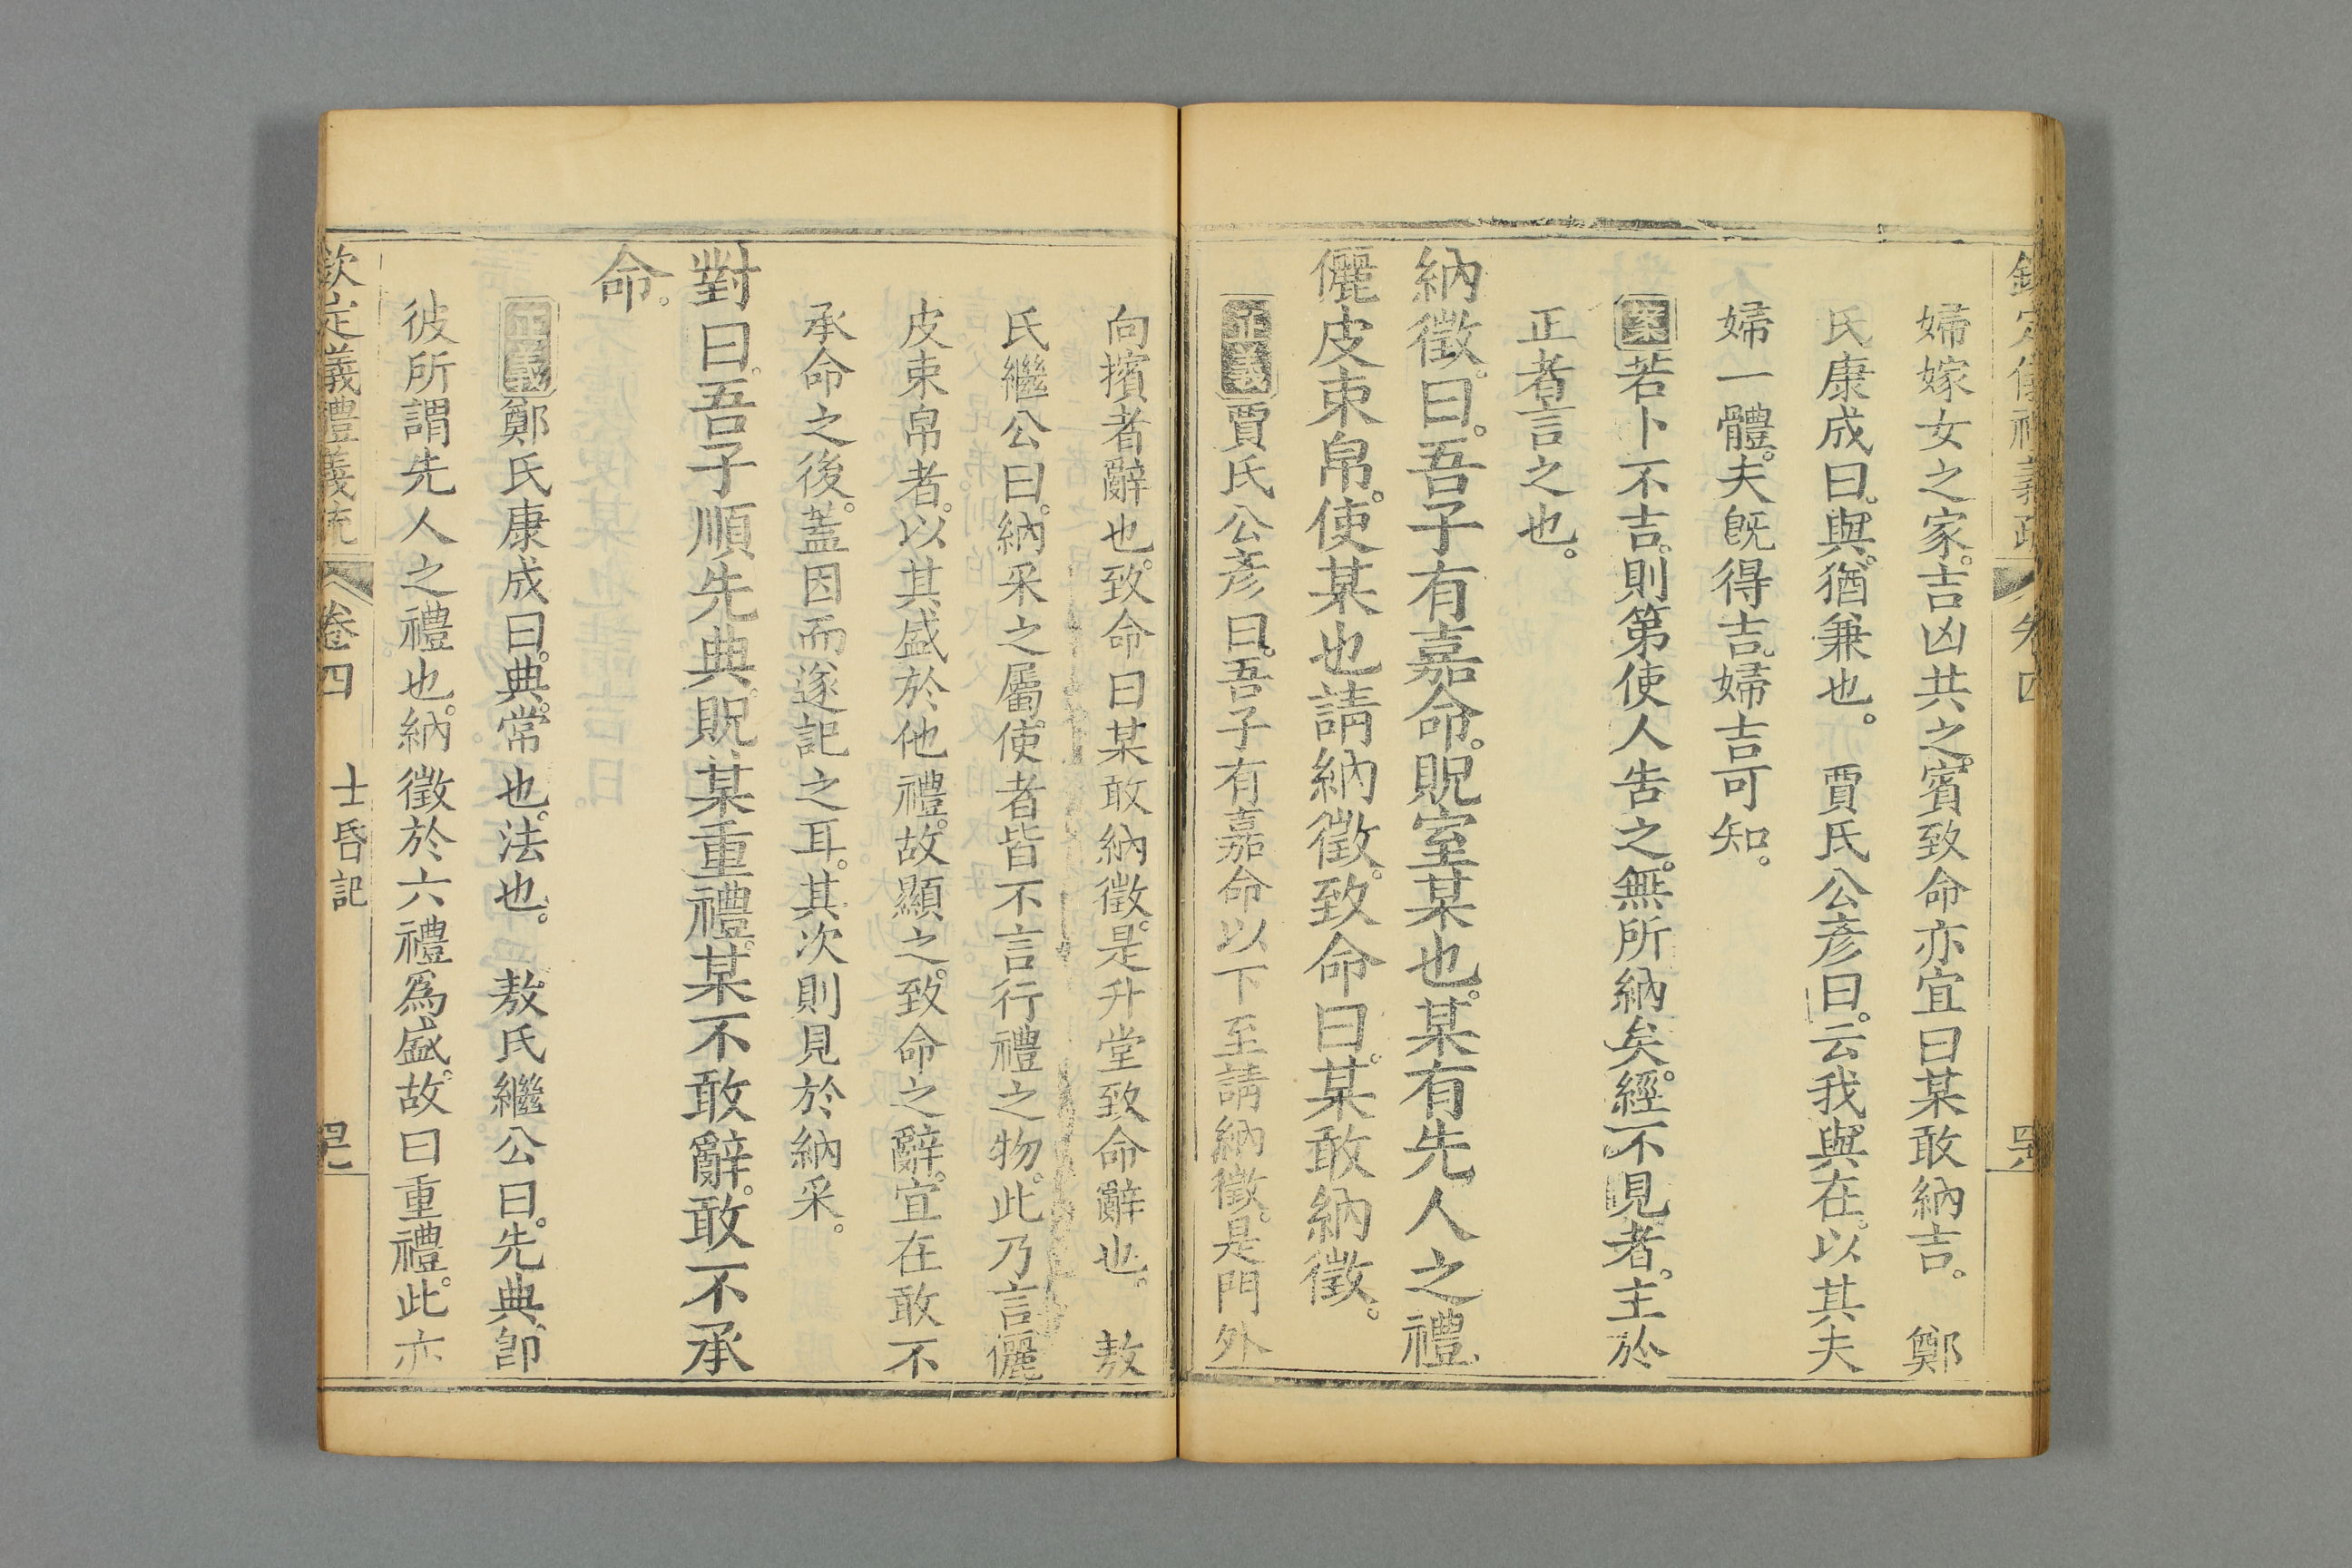 婦嫁女之家。吉凶共之。賓致命亦宜曰某敢納吉。　鄭
氏康成曰。與。猶兼也。　賈氏公彥曰。云我與在。以其夫
婦一體。夫旣得吉。婦吉可知。
案若卜不吉。則第使人告之。無所納矣。經不見者。主於
正者言之也。
納徵。曰。吾子有嘉命。貺室某也。某有先人之禮。
儷皮束帛。使某也請納徵。致命曰。某敢納徵。
正義賈氏公彥曰。吾子有嘉命以下至請納徵。是門外
向擯者辭也。致命曰某敢納徵。是升堂致命辭也。　敖
氏繼公曰。納采之屬。使者皆不言行禮之物。此乃言儷
皮束帛者。以其盛於他禮。故顯之。致命之辭。宜在敢不
承命之後。蓋因而遂記之耳。其次則見於納采。
對曰。吾子順先典。貺某重禮。某不敢辭。敢不承
命。
正義鄭氏康成曰。典。常也。法也。　敖氏繼公曰。先典。卽
彼所謂先人之禮也。納徵於六禮爲盛。故曰重禮。此亦
欽定義禮義疏　卷四　士昏記